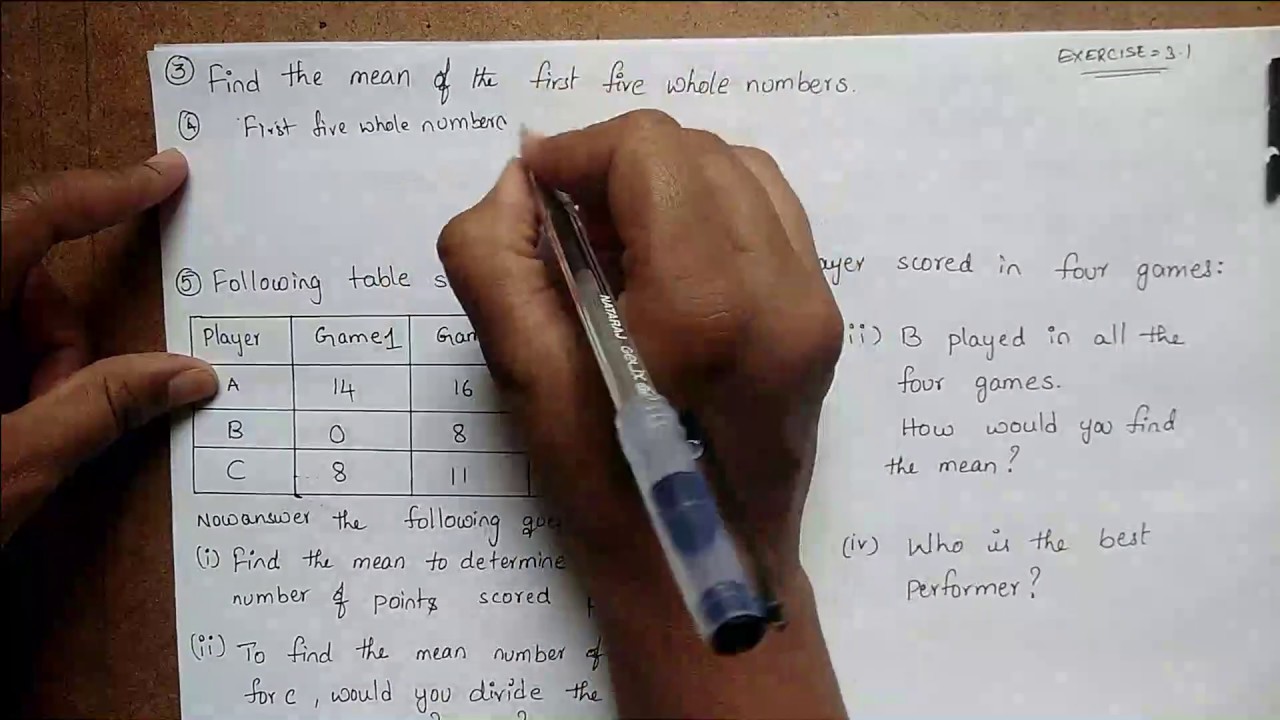 EXERCISE = 3.1
③ Find the mean of the first five whole numbers.
④ First five whole number
⑤ Following table s ayer scored in four games:
Player Game1 Gam
A 14 16
B 0 8
C 8 11
Now answer the following que
(i) Find the mean to determine
number of points scored
(ii) To find the mean number of
for c, would you divide the
ii) B played in all the
four games.
How would you find
the mean?
(iv) Who is the best
Performer?
NATARAJ GELIX